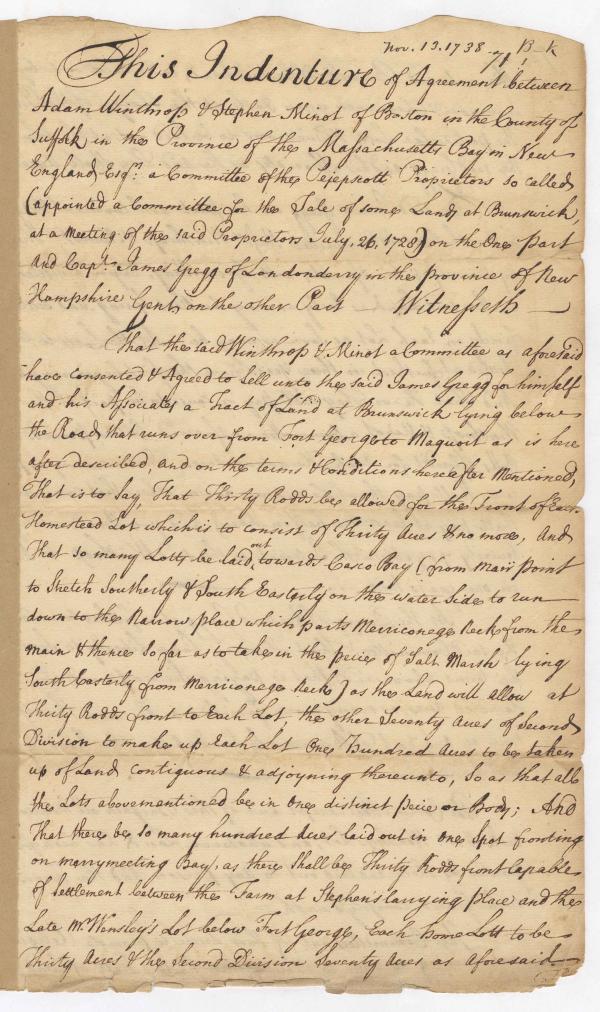 Nov. 13. 1738 71 B K
This Indenture of Agreement between
Adam Winthrop & Stephen Minot of Boston in the County of
Suffolk in the Province of the Massachusetts Bay in New
England Esqrs. a Committee of the Pejepscott Proprietors so called
(appointed a Committee for the Sale of some Land at Brunswick
at a Meeting of the said Proprietors July, 26, 1728) on the One part
and Capt. James Gregg of Londonderry in the Province of New
Hampshire Gent. on the other Part Witnesseth
That the said Winthrop & Minot a Committee as aforesaid
have consented & Agreed to Sell unto the said James Gregg for himself
and his Associates a Tract of Land at Brunswick lying below
the Road that runs over from Fort George to Maquoit as is here
after described, and on the terms & Conditions hereafter Mentioned,
That is to Say, That Thirty Rodds be allowed for the Front of Each
Homestead Lot which is to consist of Thirty Acres & no more, And
That so many Lotts be laid out towards Casco Bay (from Mair point
to Stretch Southerly & South Easterly on the water Side to run
down to the Narrow place which parts Merriconege Neck from the
main & thence so far as to take in the peice of Salt Marsh lying
South Easterly from Merriconege Neck) as the Land will allow at
Thirty Rodds front to Each Lot, the other Seventy Acres of Second
Division to make up Each Lot One Hundred Acres to be taken
up of Land contiguous & adjoyning thereunto, So as that all
the Lots abovementioned be in One distinct peice or Body; And
That there be so many hundred Acres laid out in One Spot fronting
on Marrymeeting Bay, as there Shall be Thirty Rodds front Capable
of Settlement between the Farm at Stephen's carrying place and the
Late Mr. Wensley's Lot below Fort George, Each home Lott to be
Thirty Acres & the Second Division Seventy Acres as aforesaid